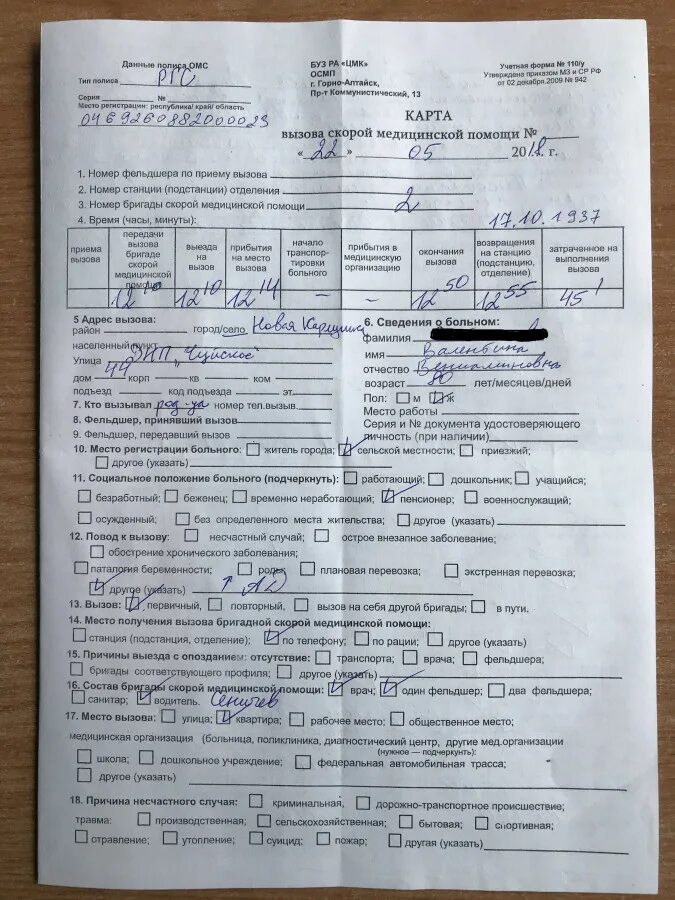 Данные полиса ОМС
Тип полиса РГС
Серия № 
Место регистрации: республика/ край/ область
0469260882000023
БУЗ РА «ЦМК»
ОСМП
г. Горно-Алтайск,
Пр-т Коммунистический, 13
Учетная форма № 110/у
Утверждена приказом МЗ и СР РФ
от 02 декабря 2009 № 942
КАРТА
вызова скорой медицинской помощи №
« 22 » 05 2018 г.
1. Номер фельдшера по приему вызова
2. Номер станции (подстанции) отделения
3. Номер бригады скорой медицинской помощи 2
4. Время (часы, минуты):
17.10.1937
приема вызова
передачи вызова бригаде скорой медицинской помощи
выезда на вызов
прибытия на место вызова
начало транспортировки больного
прибытия в медицинскую организацию
окончания вызова
возвращения на станцию (подстанцию, отделение)
затраченное на выполнения вызова
12 10 12 10 12 14 – – 12 50 12 55 45'
5 Адрес вызова:
район город/село Новая
населенный пункт
Улица "Чуйское"
44
дом корп кв ком
подъезд код подъезда эт.
6. Сведения о больном:
фамилия
имя Валентина
отчество Вениаминовна
возраст 80 лет/месяцев/дней
Пол: м ж
Место работы
Серия и № документа удостоверяющего личность (при наличии)
7. Кто вызывал номер тел.вызыв.
8. Фельдшер, принявший вызов
9. Фельдшер, передавший вызов
10. Место регистрации больного: житель города; сельской местности; приезжий;
другое (указать)
11. Социальное положение больного (подчеркнуть): работающий; дошкольник; учащийся;
безработный; беженец; временно неработающий; пенсионер; военнослужащий;
осужденный; без определенного места жительства; другое (указать)
12. Повод к вызову: несчастный случай; острое внезапное заболевание;
обострение хронического заболевания;
паталогия беременности; роды; плановая перевозка; экстренная перевозка;
другое (указать) ↑ АД
13. Вызов: первичный, повторный, вызов на себя другой бригады; в пути.
14. Место получения вызова бригадной скорой медицинской помощи:
станция (подстанция, отделение); по телефону; по рации; другое (указать)
15. Причины выезда с опозданием: отсутствие: транспорта; врача; фельдшера;
бригады соответствующего профиля; другое (указать)
16. Состав бригады скорой медицинской помощи: врач; один фельдшер; два фельдшера;
санитар; водитель.
17. Место вызова: улица; квартира; рабочее место; общественное место;
медицинская организация (больница, поликлиника, диагностический центр, другие мед.организации
(нужное — подчеркнуть):
школа; дошкольное учреждение; федеральная автомобильная трасса;
другое (указать)
18. Причина несчастного случая: криминальная, дорожно-транспортное происшествие;
травма: производственная; сельскохозяйственная; бытовая; спортивная;
отравление; утопление; суицид; пожар; другая (указать)